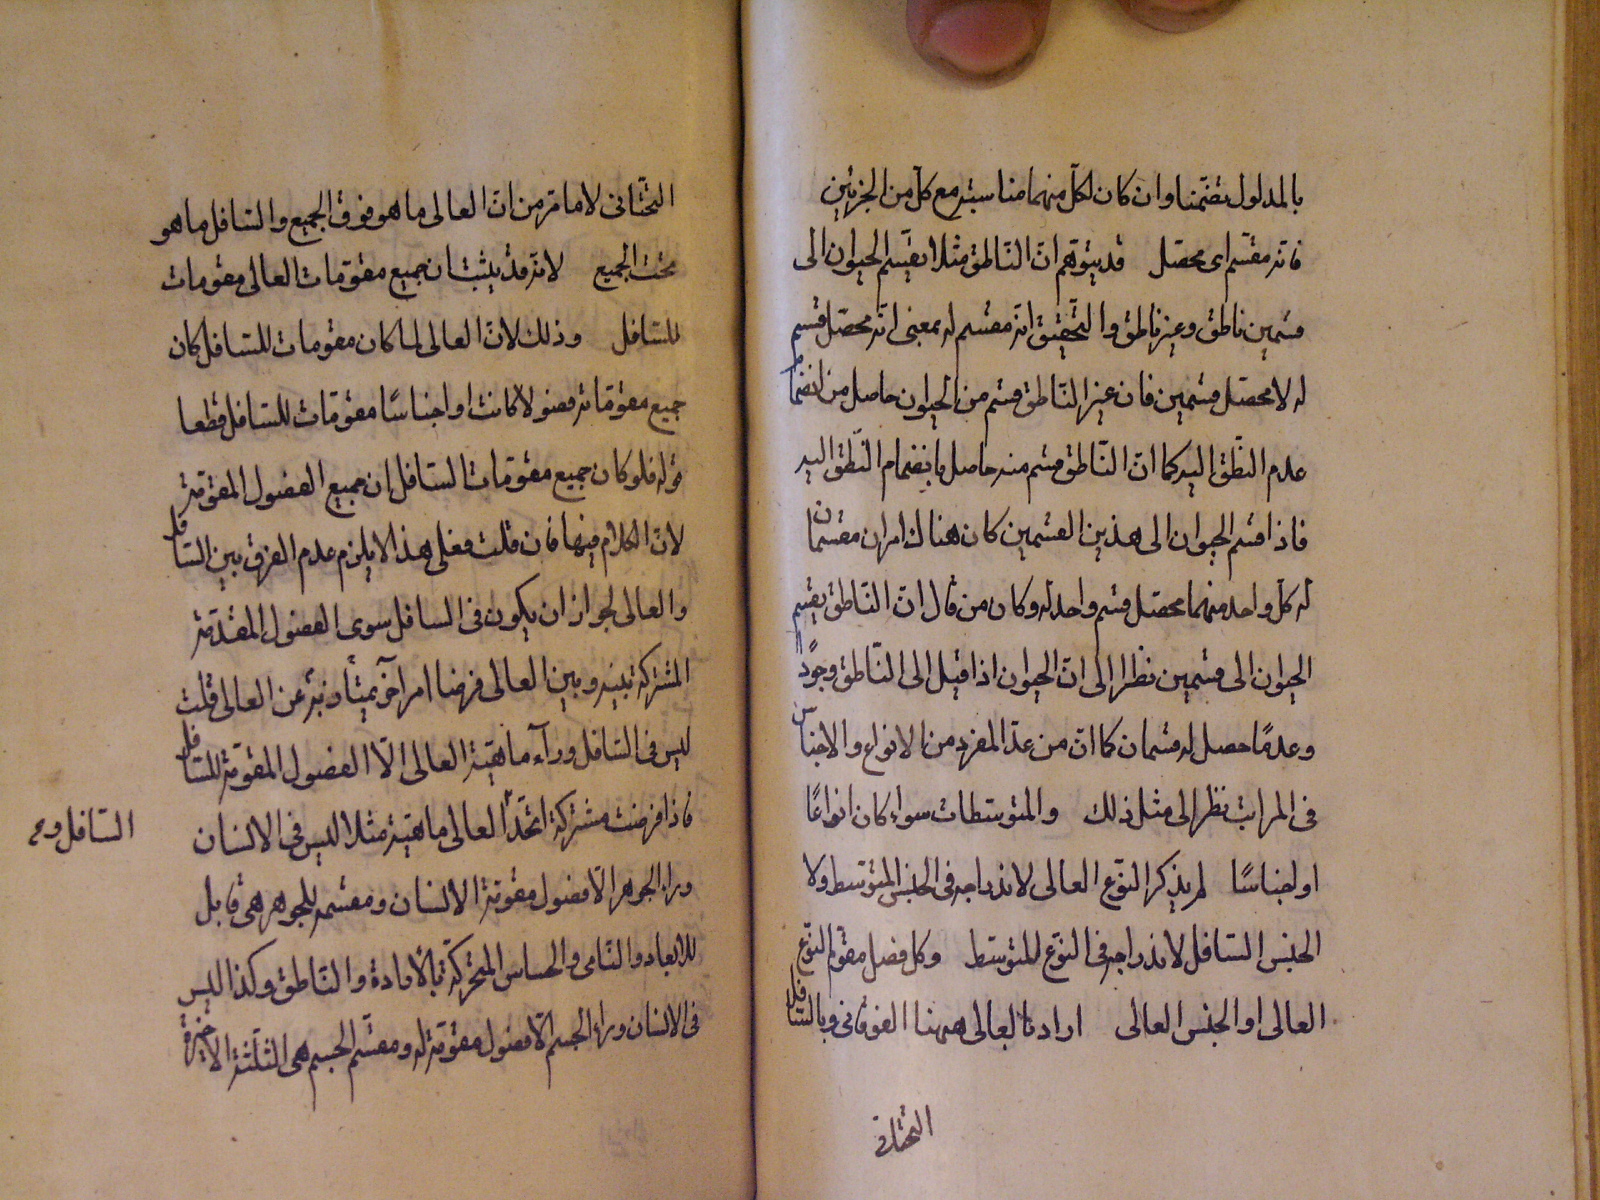 بالمدلول تضمّنا وان كان لكل منهما مناسبة مع كل من الجزئين
فانه مقسّم اى محصّل قد يتوهّم انّ النّاطق مثلا يقسّم الحيوان الى
قسمين ناطق وغير ناطق والتّحقيق انّه مقسّم له بمعنى انّه محصّل قسم
له لا محصّل قسمين فان غير النّاطق قسم من الحيوان حاصل من انضمام
عدم النّطق اليه كما انّ النّاطق قسم منه حاصل بانضمام النّطق اليه
فاذا قسّم الحيوان الى هذين القسمين كان هناك امران مقسّمان
له كل واحد منهما محصّل قسم واحد له وكان من قال انّ النّاطق يقسّم
الحيوان الى قسمين نظر الى انّ الحيوان اذا قيل الى النّاطق وجودًا
وعدمًا حصل له قسمان كما انّ من عدّ المفرد من الانواع والاجناس
فى المراتب نظر الى مثل ذلك والمتوسطات سواء كان انواعًا
او اجناسًا لم يذكر النوّع العالى لاندراجه فى الجنس المتوسط ولا
الجنس السّافل لاندراجه فى النوّع المتوسط وكل فصل مقوّم النوّع
العالى او الجنس العالى اراد بالعالى ههنا الفوقانى وبالسّافل
التحتانى
التّحتانى لا ما مرّ من انّ العالى ما هو فوق الجميع والسّافل ما هو
تحت الجميع لانّه قد يثبت ان جميع مقوّمات العالى مقوّمات
للسّافل وذلك لانّ العالى لما كان مقوّمات للسّافل كان
جميع مقوّماته فصولا كانت او اجناسًا مقوّمات للسّافل قطعا
قوله فلو كان جميع مقوّمات السّافل ان جميع الفصول المقوّمة
لانّ الكلام فيها فان قلت فعلى هذا لا يلزم عدم الفرق بين السّافل
والعالى لجواز ان يكون فى السافل سوى الفصول المقدّمة
المشتركة بينه وبين العالى فرضا امر اخر يمتاز به عن العالى قلت
ليس فى السّافل وراء ماهيّة العالى الّا الفصول المقوّمة للسّافل
فاذا فرضت مشتركة اتّحد العالى ماهيّة مثلا ليس فى الانسان
السّافل و
وراء الجوهر الّا فصول مقوّمة الانسان ومقسّمة للجوهر هى قابل
للابعاد والنّامى والحساس المتحركة بالأرادة والنّاطق وكذا ليس
فى الانسان وراء الجسم الّا فصول مقوّمة له ومقسّم الجسم هى الثّلثة الاخيرة